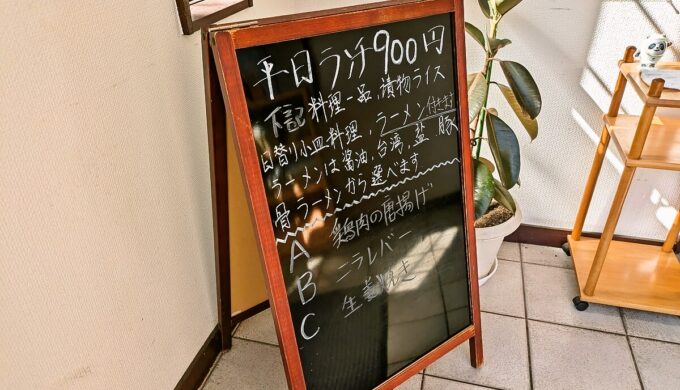 平日ランチ900円
下記料理一品、漬物ライス
日替り小皿料理、ラーメン付きます
ラーメンは醤油、台湾、塩、豚
骨ラーメンから選べます
A 鶏肉の唐揚げ
B ニラレバー
C 生姜焼き